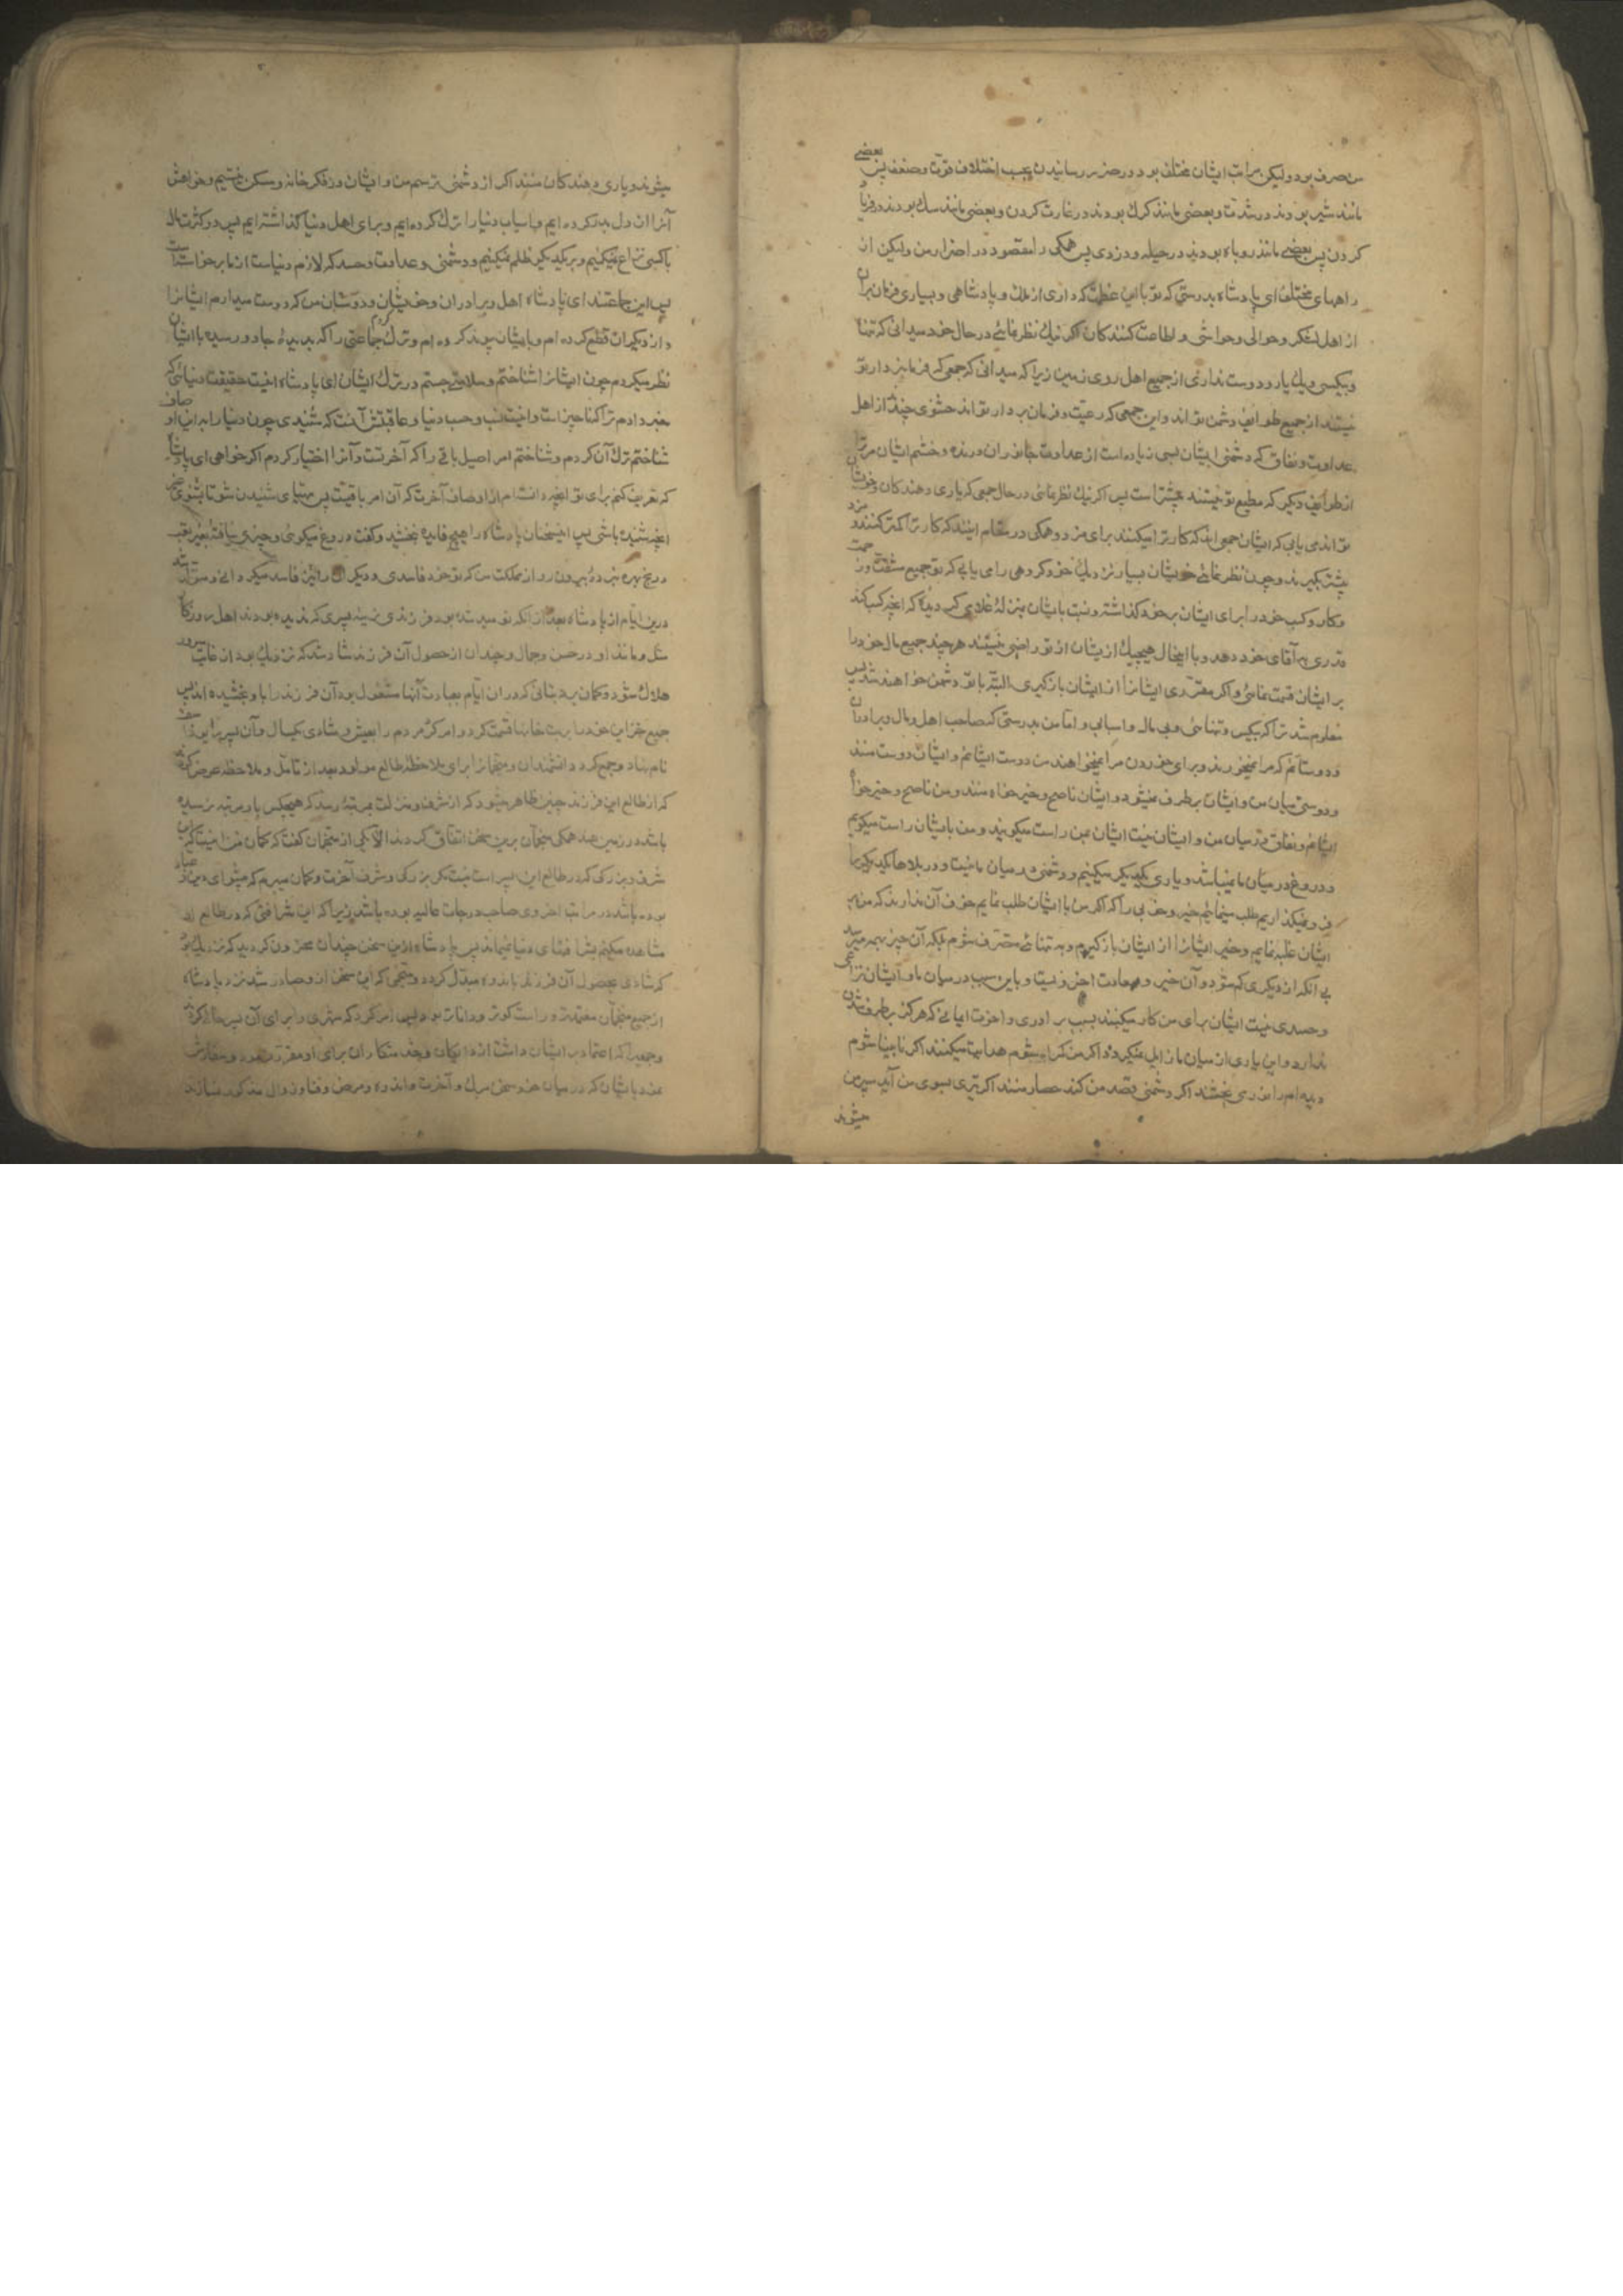 من صرف بود ولیکن مراتب ایشان مختلف بود در ضرر رسانیدن بحسب اختلاف قوت و ضعف پس بعضی
مانند شیر بودند در شدت و بعضی مانند کرک بودند در غارت کردن و بعضی مانند سک بودند در فریاد
کردن پس بعضی مانند روباه بودند در حیله و دزدی پس همکی را مقصود در اضرار من ولیکن از
راههای مختلف ای پادشاه بدرستی که تو با این عظمت که داری از ملک و پادشاهی و بسیاری فرمان بران
از اهل لشکر و حوالی و حواشی و اطاعت کنندکان اکر نیک نظر نمائی در حال خود میدانی که تنها
و بیکسی و یک یار و دوست نداری از جمیع اهل روی زمین زیرا که میدانی که جمعی که فرمانبردار تو
نیستند از جمیع طوایف دشمن تو اند و این جمعی که رعیت و فرمان بردار تو اند حشوی چند از اهل
عداوت و نفاق که دشمنی ایشان بسی زیاده است از عداوت جانوران درنده و خشم ایشان مر ترا
از طوایف دیکر که مطیع تو نیستند بیشتر است پس اکر نیک نظر نمائی در حال جمعی که یاری دهندکان و خویشان
تو اند می یابی که ایشان جمعی اند که کار ترا میکنند برای مزد و همکی در مقام اینند که کار ترا کمتر کنند و مزد
بیشتر بکیرند و چون نظر نمائی خویشان بسیار نزدیک خود کروهی را می یابی که تو جمیع مشقت و زحمت
و کار و کسب خود را برای ایشان بر خود کذاشته و نسبت بایشان بمنزلهٔ غلامی کردیدهٔ که انچه کسب کند
قدری به آقای خود دهد و با اینحال هیچیک از یشان از تو راضی نیستند هر چند جمیع مال خود را
بر ایشان قسمت نمائی و اکر مقرری ایشانرا از ایشان بازکیری البته با تو دشمن خواهند شد پس
معلوم شد ترا که بیکس و تنهائی و بی مال و اسبابی و اما من بدرستی که صاحب اهل و مال و برادران
و دوستانم که مرا نمیخورند و برای خوردن مرا نمیخواهند من دوست ایشانم و ایشان دوست منند
و دوستی میان من و ایشان برطرف نمیشود و ایشان ناصح و خیر خواه منند و من ناصح و خیر خواه
ایشانم و نفاق در میان من و ایشان نیست ایشان بمن راست میکویند و من بایشان راست میکویم
و دروغ در میان ما نمیباشد و یاری یکدیکر میکنیم و دشمنی در میان ما نیست و در بلاها یکدیکر را
فرو نمیکذاریم طلب مینمائیم خیر و خوبی را که اکر من با ایشان طلب نمایم خوف آن ندارند که من بر
ایشان غلبه نمایم و خیر ایشانرا از ایشان بازکیرم و به تنهائی متصرف شوم بلکه آن چیز بهمه میرسد
بی انکه از دیکری کم شود و آن خیر و سعادت اخرویست و باین سبب در میان ما و ایشان نزاعی
و حسدی نیست ایشان برای من کار میکنند بسبب برادری و اخوت ایمانی که هرکز برطرف شدن
ندارد و این یاری از میان ما زایل نمیکردد اکر من کمراه شوم هدایت میکنند اکر نابینا شوم
دیده ام را نور می بخشند اکر دشمنی قصد من کند حصار منند اکر تیری بسوی من آید سپر من
میشوند
میشوند و یاری دهندکان منند اکر از دشمنی بترسم من و ایشان در فکر خانه و مسکن نیستیم و خواهش
آنرا از دل بدر کرده ایم و اسباب دنیا را ترک کرده ایم و برای اهل دنیا کذاشته ایم پس در کثرت مال
با کسی نزاع نمیکنیم و بر یکدیکر ظلم نمیکنیم و دشمنی و عداوت و حسد که لازم دنیاست از ما برخواسته است
پس این جماعتند ای پادشاه اهل و برادران و خویشان و دوستان من که دوست میدارم ایشانرا
و از دیکران قطع کرده ام و بایشان پیوند کرده ام و ترک کردم جماعتی را که بدیدهٔ جادو رسیده با ایشان
نظر میکردم چون ایشانرا شناختم و سلامتی جستم در ترک ایشان ای پادشاه اینست حقیقت دنیائی که
خبر دادم ترا که ناچیز است و اینست نسب و حسب دنیا و عاقبتش آنست که شنیدی چون دنیا را به این اوصاف
شناختم ترک آن کردم و شناختم امر اصیل باقی را که آخرتست و آنرا اختیار کردم اکر خواهی ای پادشاه
که تعریف کنم برای تو انچه دانسته ام از اوصاف آخرت که آن امر باقیست پس مهیای شنیدن شو تا بشنوی غیر
انچه شنیده باشی پس این سخنان پادشاه را هیچ فایده نبخشید و کفت دروغ میکوئی و چیزی نیافتهٔ بغیر تعب
و رنج بهره نبردهٔ بیرون رو از مملکت من که تو خود فاسدی و دیکران را نیز فاسد میکردانی و متولد شد
درین ایام از پادشاه بعد از انکه نومید شده بود فرزندی نرینه پسری که ندیده بودند اهل روزکار
مثل و مانند او در حسن و جمال و چندان از حصول آن فرزند شاد شد که نزدیک بود از غایت سرور
هلاک شود و کمان برد بتانی که در ان ایام بعبادت آنها مشغول بود آن فرزند را باو بخشیده اند پس
جمیع خزاین خود را بر بت خانها قسمت کرد و امر کرد مردم را بعیش و شادی یکسال و آن پسر را یوذاسف
نام نهاد و جمع کرد دانشمندان و منجمانرا برای ملاحظهٔ طالع مولود بعد از تأمل و ملاحظه عرض کردند
که از طالع این فرزند چنین ظاهر میشود که از شرف و منزلت بمرتبهٔ رسد که هیچکس باو مرتبه نرسیده
باشد در زمین هند همکی منجمان برین سخن اتفاق کردند الا یکی از منجمان کفت که کمان من اینست که این
شرف و بزرکی که در طالع این پسر است نیست مکر بزرکی و شرف آخرت و کمان میبرم که پیشوای دین و عباد
بوده باشد در مراتب اخروی صاحب درجات عالیه بوده باشد زیرا که این شرافتی که در طالع او
مشاهده میکنم بشرافتهای دنیا نمیماند پس پادشاه ازین سخن چندان محزون کردید که نزدیک بود
که شادی بحصول آن فرزند باندوه مبدل کردد و منجمی که این سخن از و صادر شد نزد پادشاه
از جمیع منجمان معتمدتر و راست کوتر و داناتر بود پس امر کرد که شهری را برای آن پسر خالی کردند
و جمعی که اعتماد بر ایشان داشت از دایکان و خدمتکاران برای او مقرر نمود و سفارش
نمود بایشان که در میان خود سخن مرک و آخرت و اندوه و مرض و فنا و زوال مذکور نسازند